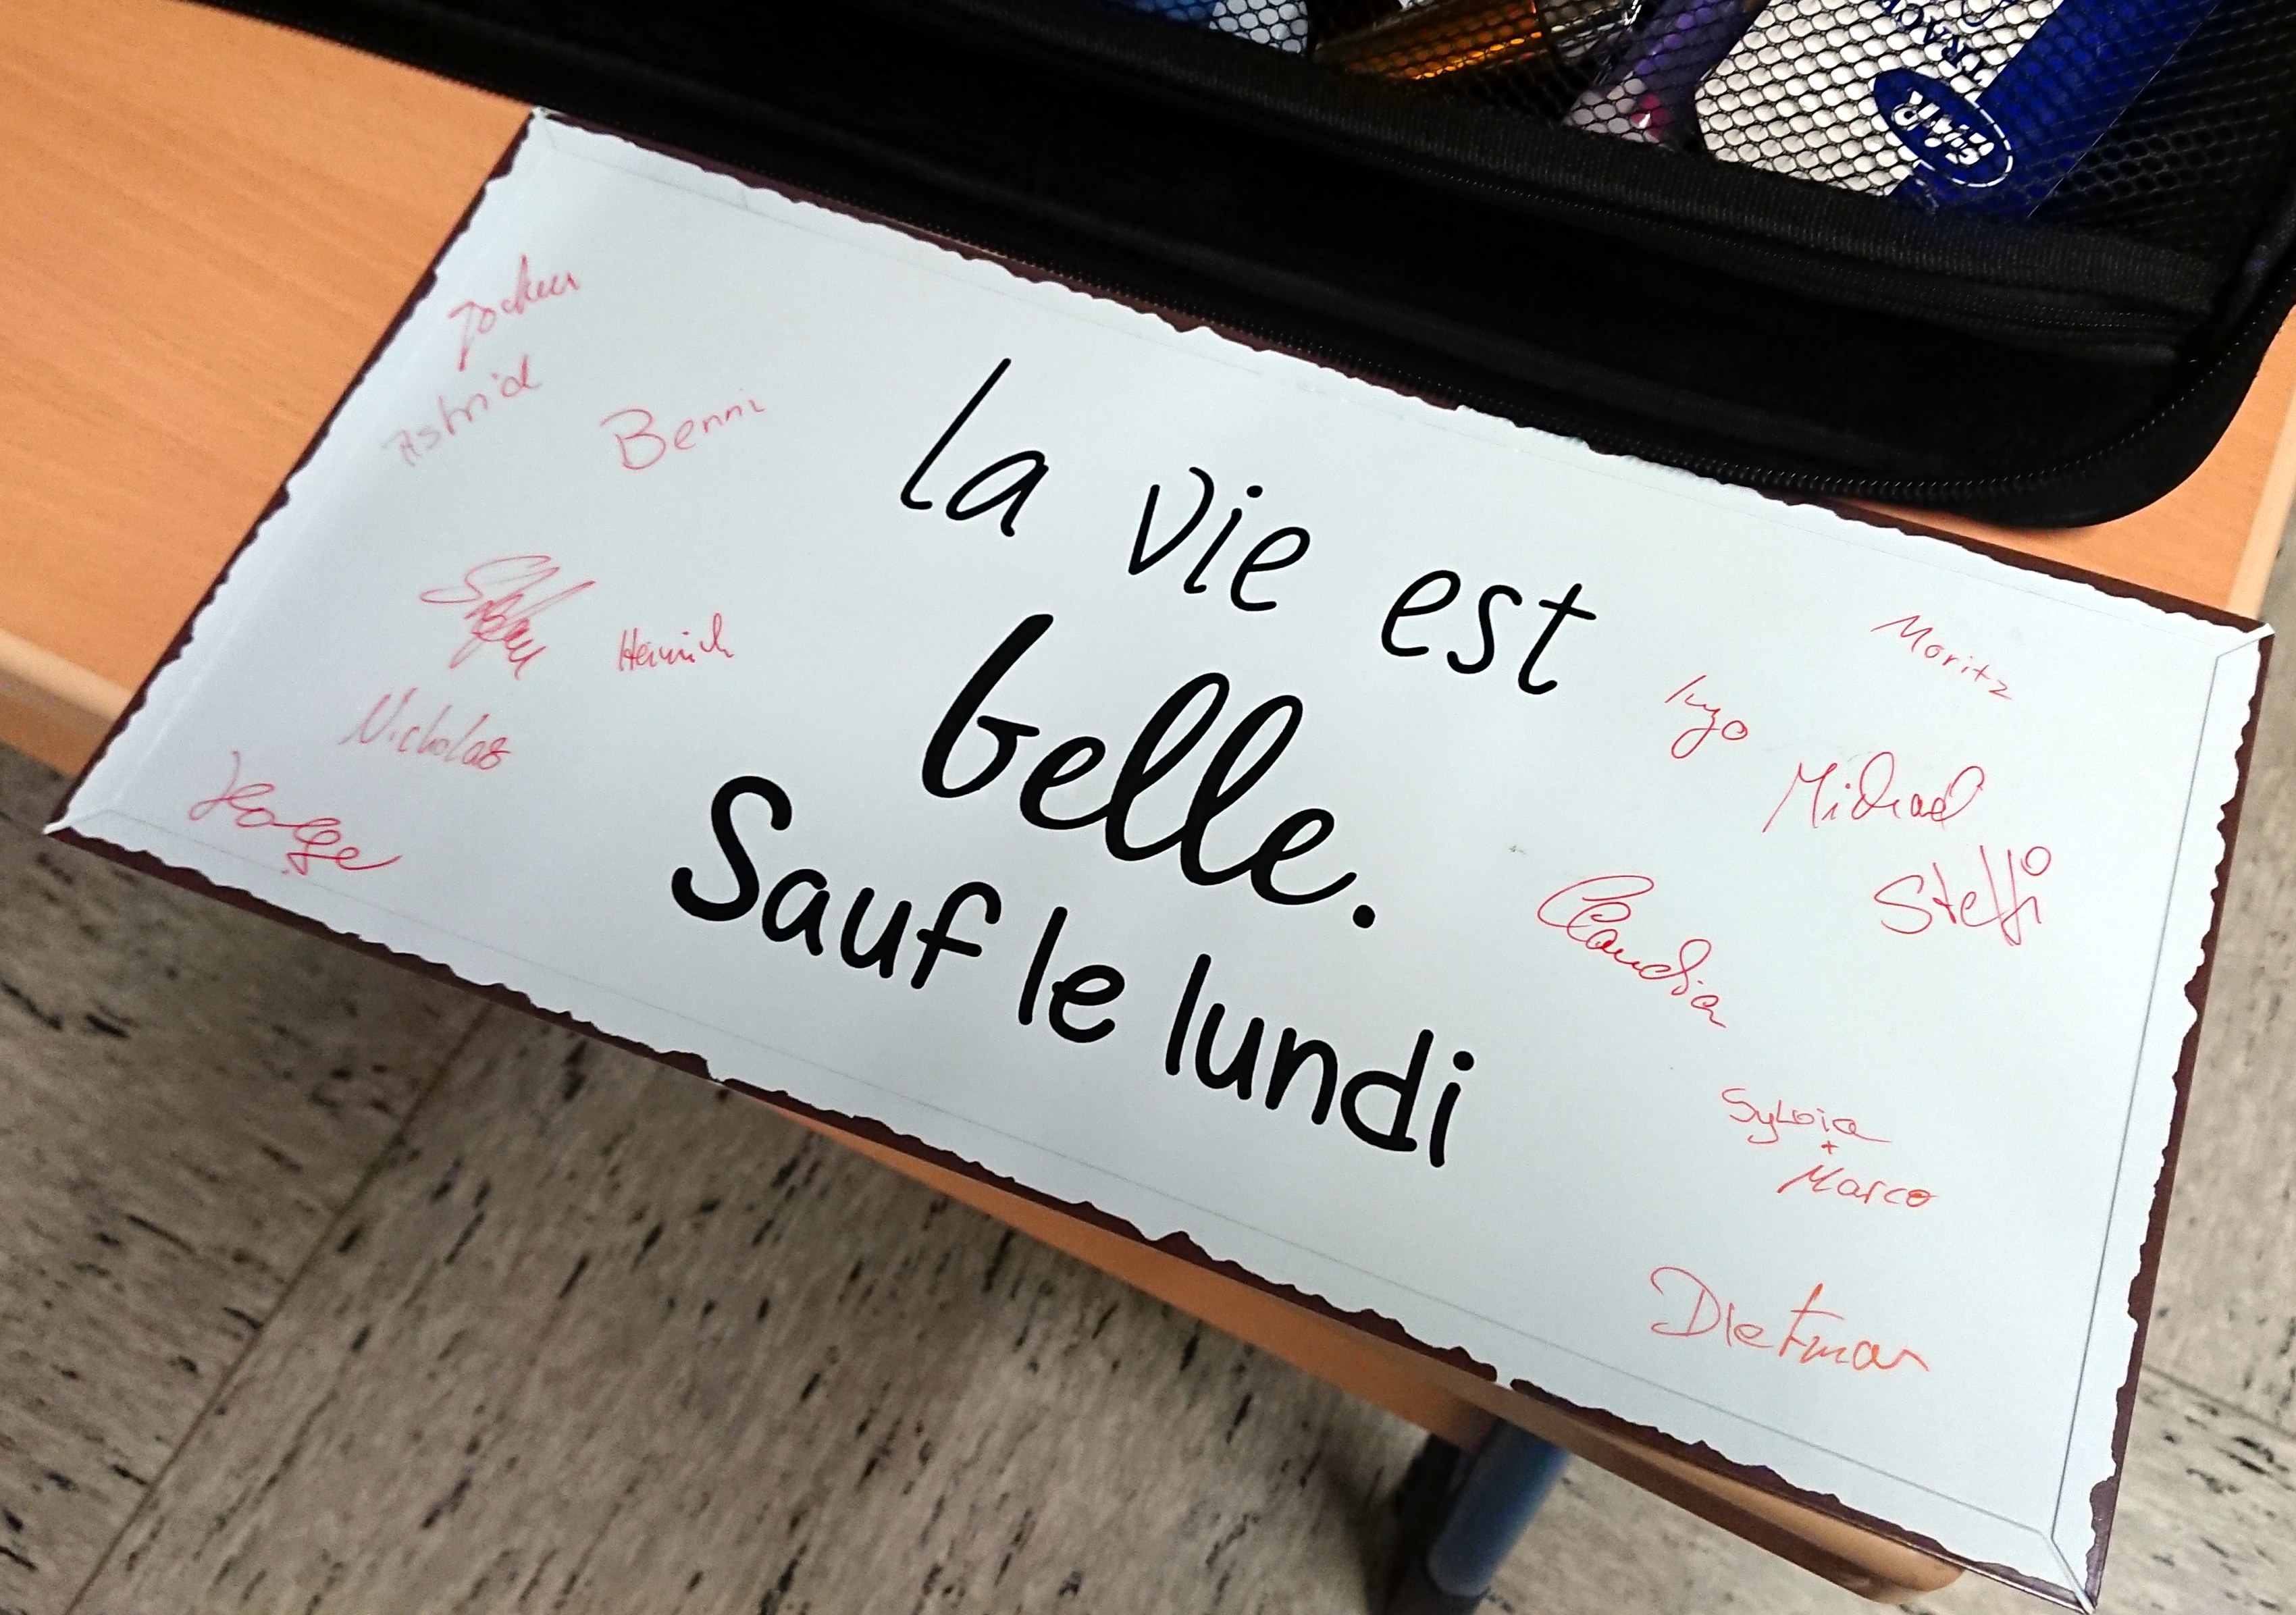 Jochen
Astrid
Benni
Stefan
Heinrich
Nicholas
Holger
la vie est
belle.
Sauf le lundi
Moritz
Ingo
Michael
Steffi
Claudia
Sylvia
+
Marco
Dietmar